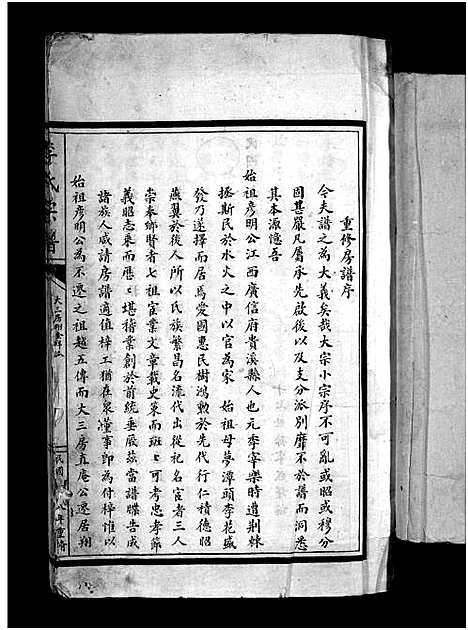 重修房譜序
今夫譜之為大義矣哉大宗小宗序不可亂或昭或穆分
固甚嚴凡屬承先啟後以及支分派別靡不於譜而洞悉
其本源憶吾
始祖彥明公江西廣信府貴溪縣人也元季宰樂時遭荆棘
拯斯民於水火之中以官為家 始祖母夢潭頭李花盛
發乃遂擇而居焉愛國惠民樹鴻勲於先代行仁積德昭
燕翼於後人所以氏族繁昌名流代出從祀名宦者三人
崇奉鄉賢者七祖宦業文章載史策而班班可考忠孝節
義昭志乘而歷歷堪稽業創於前統垂厥茲當譜牒告成
諸族人咸請房譜適值梓工猶在衆董事即為付梓惟以
始祖彥明公為不遷之祖越五傳而大三房真庵公遷居翔
李氏宗譜
民國 八年重脩